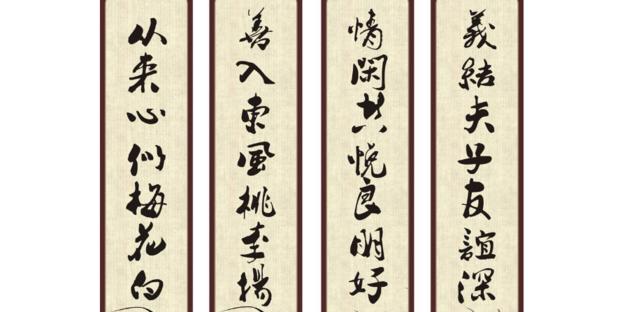 義結夫子友誼深
情閑共悦良朋好
善入東風桃李揚
从来心似梅花白